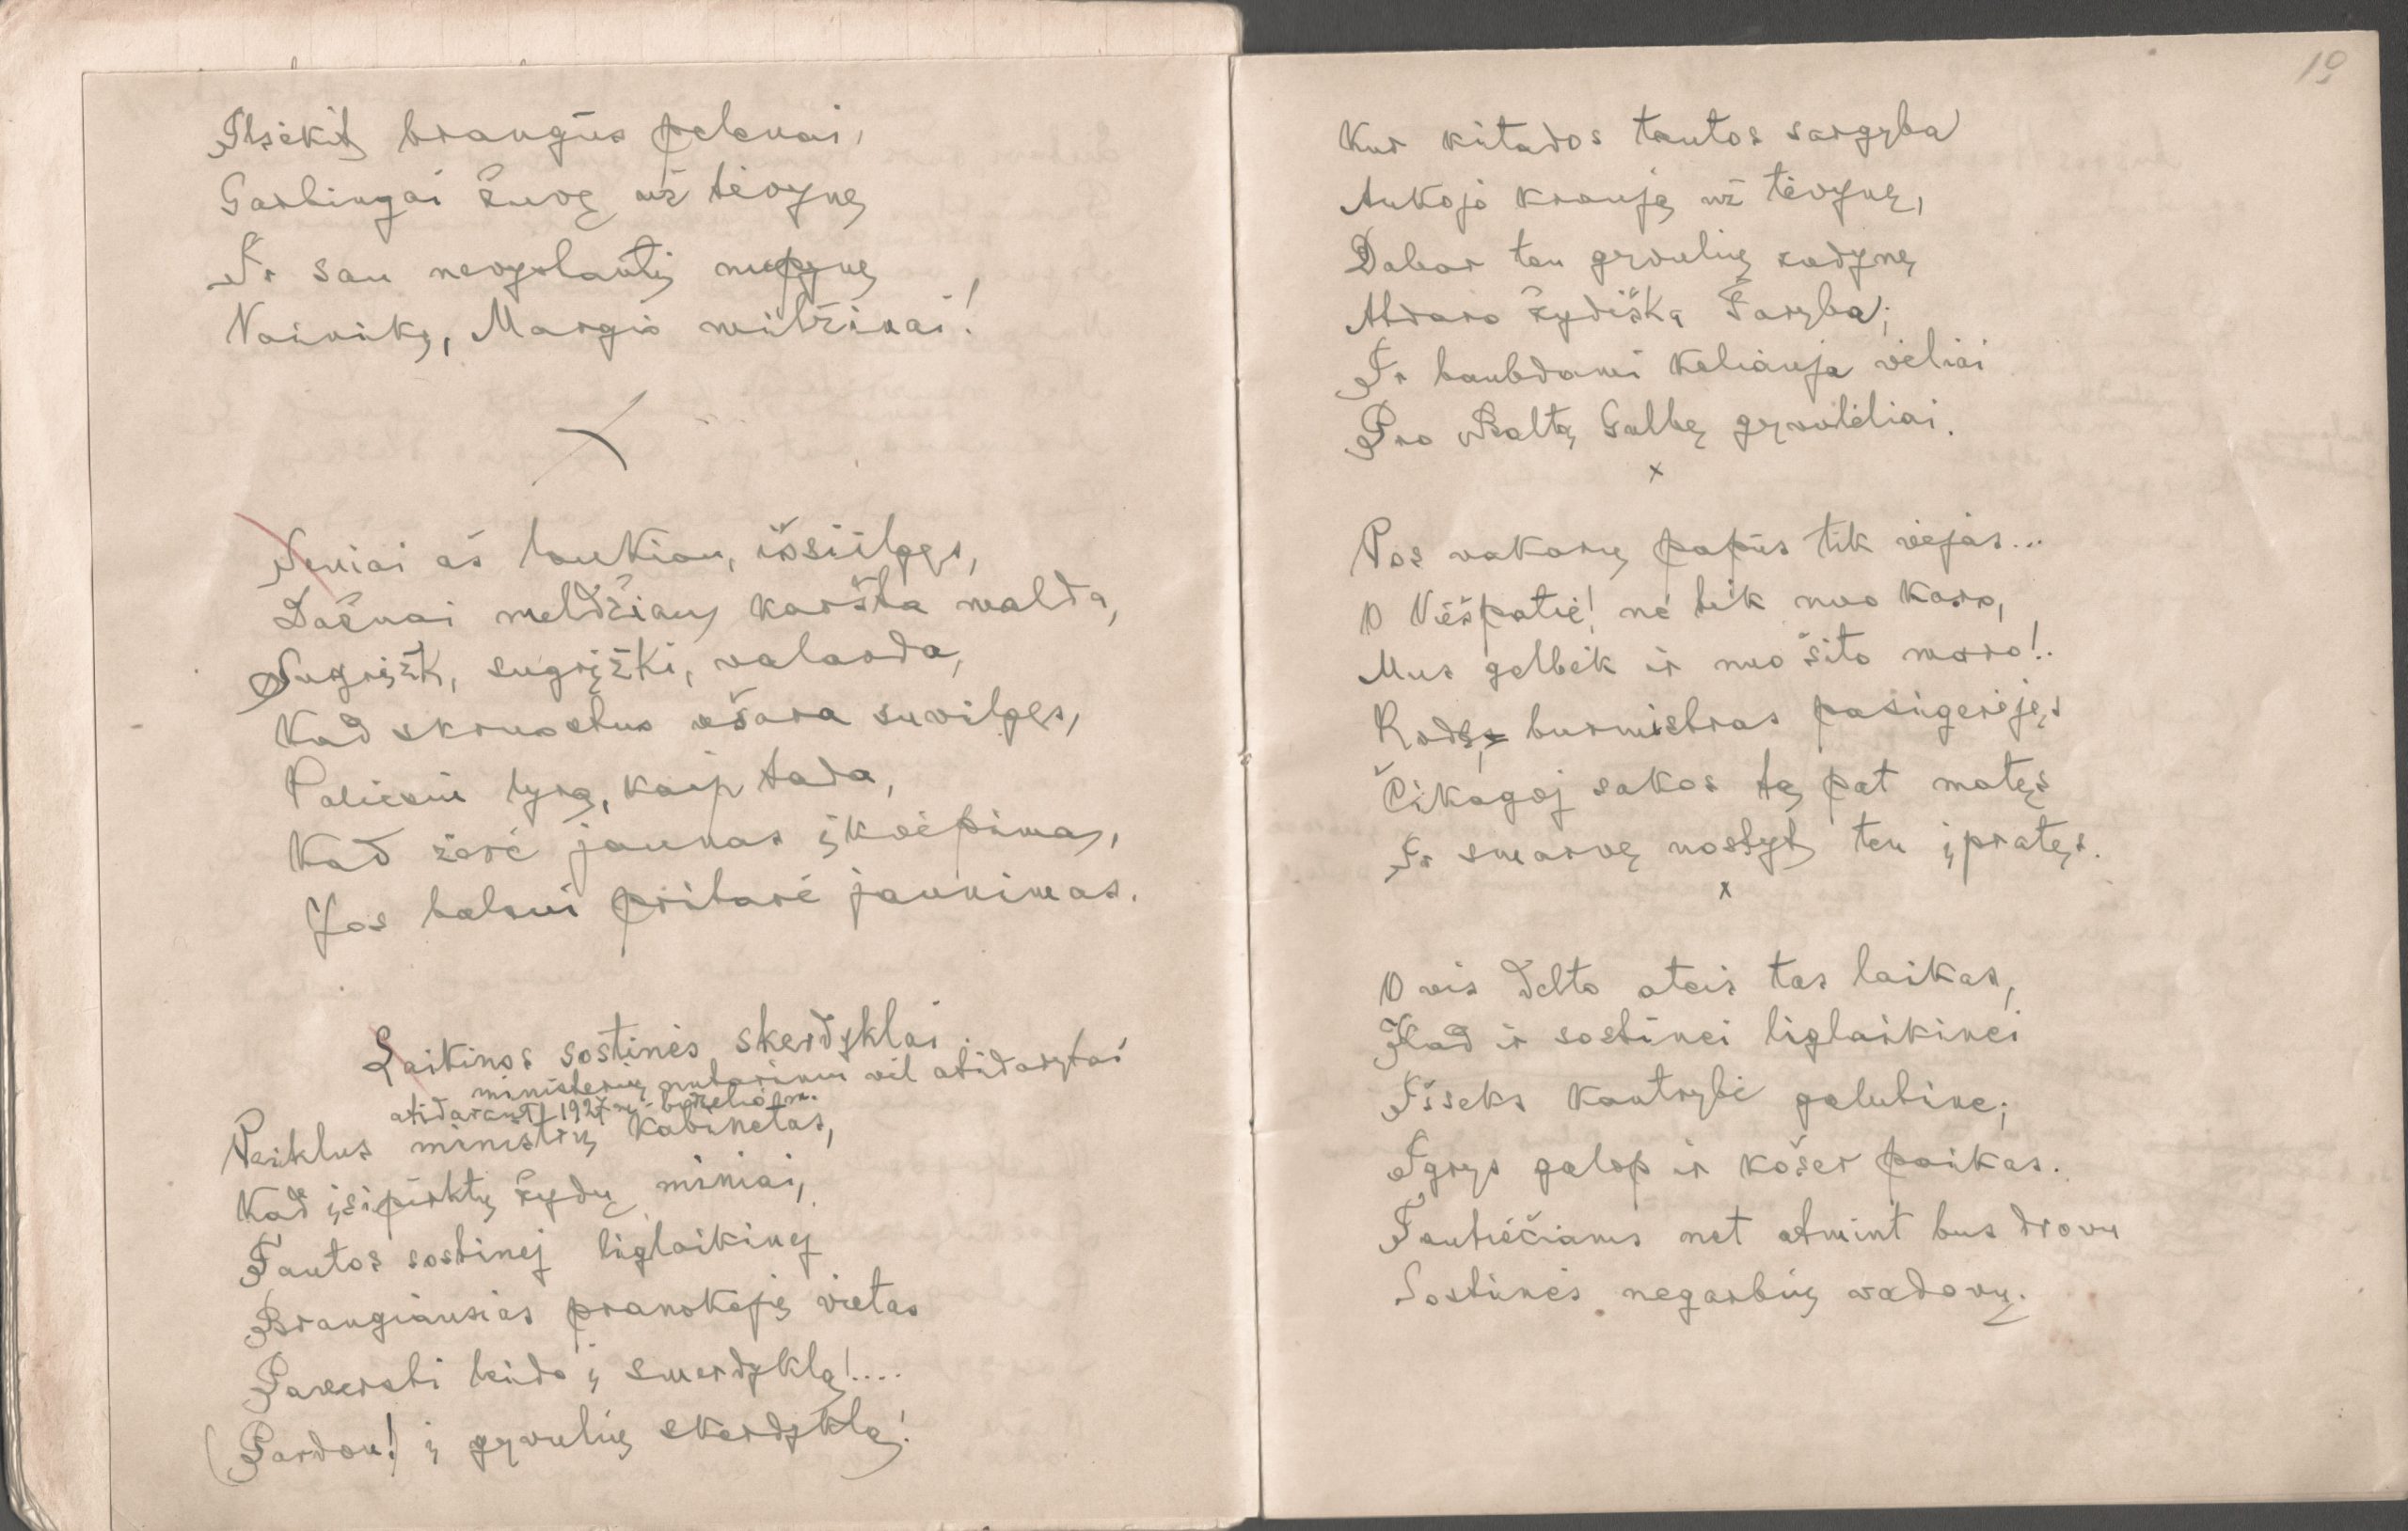 Ilsėkit, brangūs pelenai,
Garbingai žuvę už tėvynę
Ir sau nevystantį nupynę
Vainiką, Margio milžinai!
Seniai aš laukiau, išsiilgęs,
Dažnai meldžiau karšta malda,
Sugrįžk, sugrįžki, valanda,
Kad skruostus ašara suvilgęs,
Paliesiu lyrą, kaip tada,
Kad žėrė jaunas įkvėpimas,
Jos balsui pritarė jaunimas.
Laikinos sostinės skerdyklai
ministerių nutarimu vėl atidarytai
atidarant 1927 m. birželio m.
Veiklus ministrų kabinetas,
Kad įsipirktų žydų miniai,
Tautos sostinėj liglaikinėj
Brangiausias pranokėjų vietas
Paversti leido į smerdyklą!....
(Pardon! į gyvulių skerdyklą!)
19
Kur kitados tautos sargyba
Aukojo kraują už tėvynę,
Dabar ten gyvulių žudynę
Atdaro žydiška Taryba;
Ir baubdami keliauja vėliai
Pro Baltą Gulbę gyvulėliai.
x
Vos vakarų papūs tik vėjas...
O Viešpatie! ne tik nuo karo,
Mus gelbėk ir nuo šito maro!.
Rods, burmistras pasigėrėjęs
Čikagoj sakos tą pat matęs
Ir smarvę uostyt ten įpratęs.
x
O vis dėlto ateis tas laikas,
Kad ir sostinei liglaikinei
Išseks kantrybė galutinė;
Įgrys galop ir košer paikas.
Tautiečiams net atmint bus drovu
Sostinės negarbių vadovų.